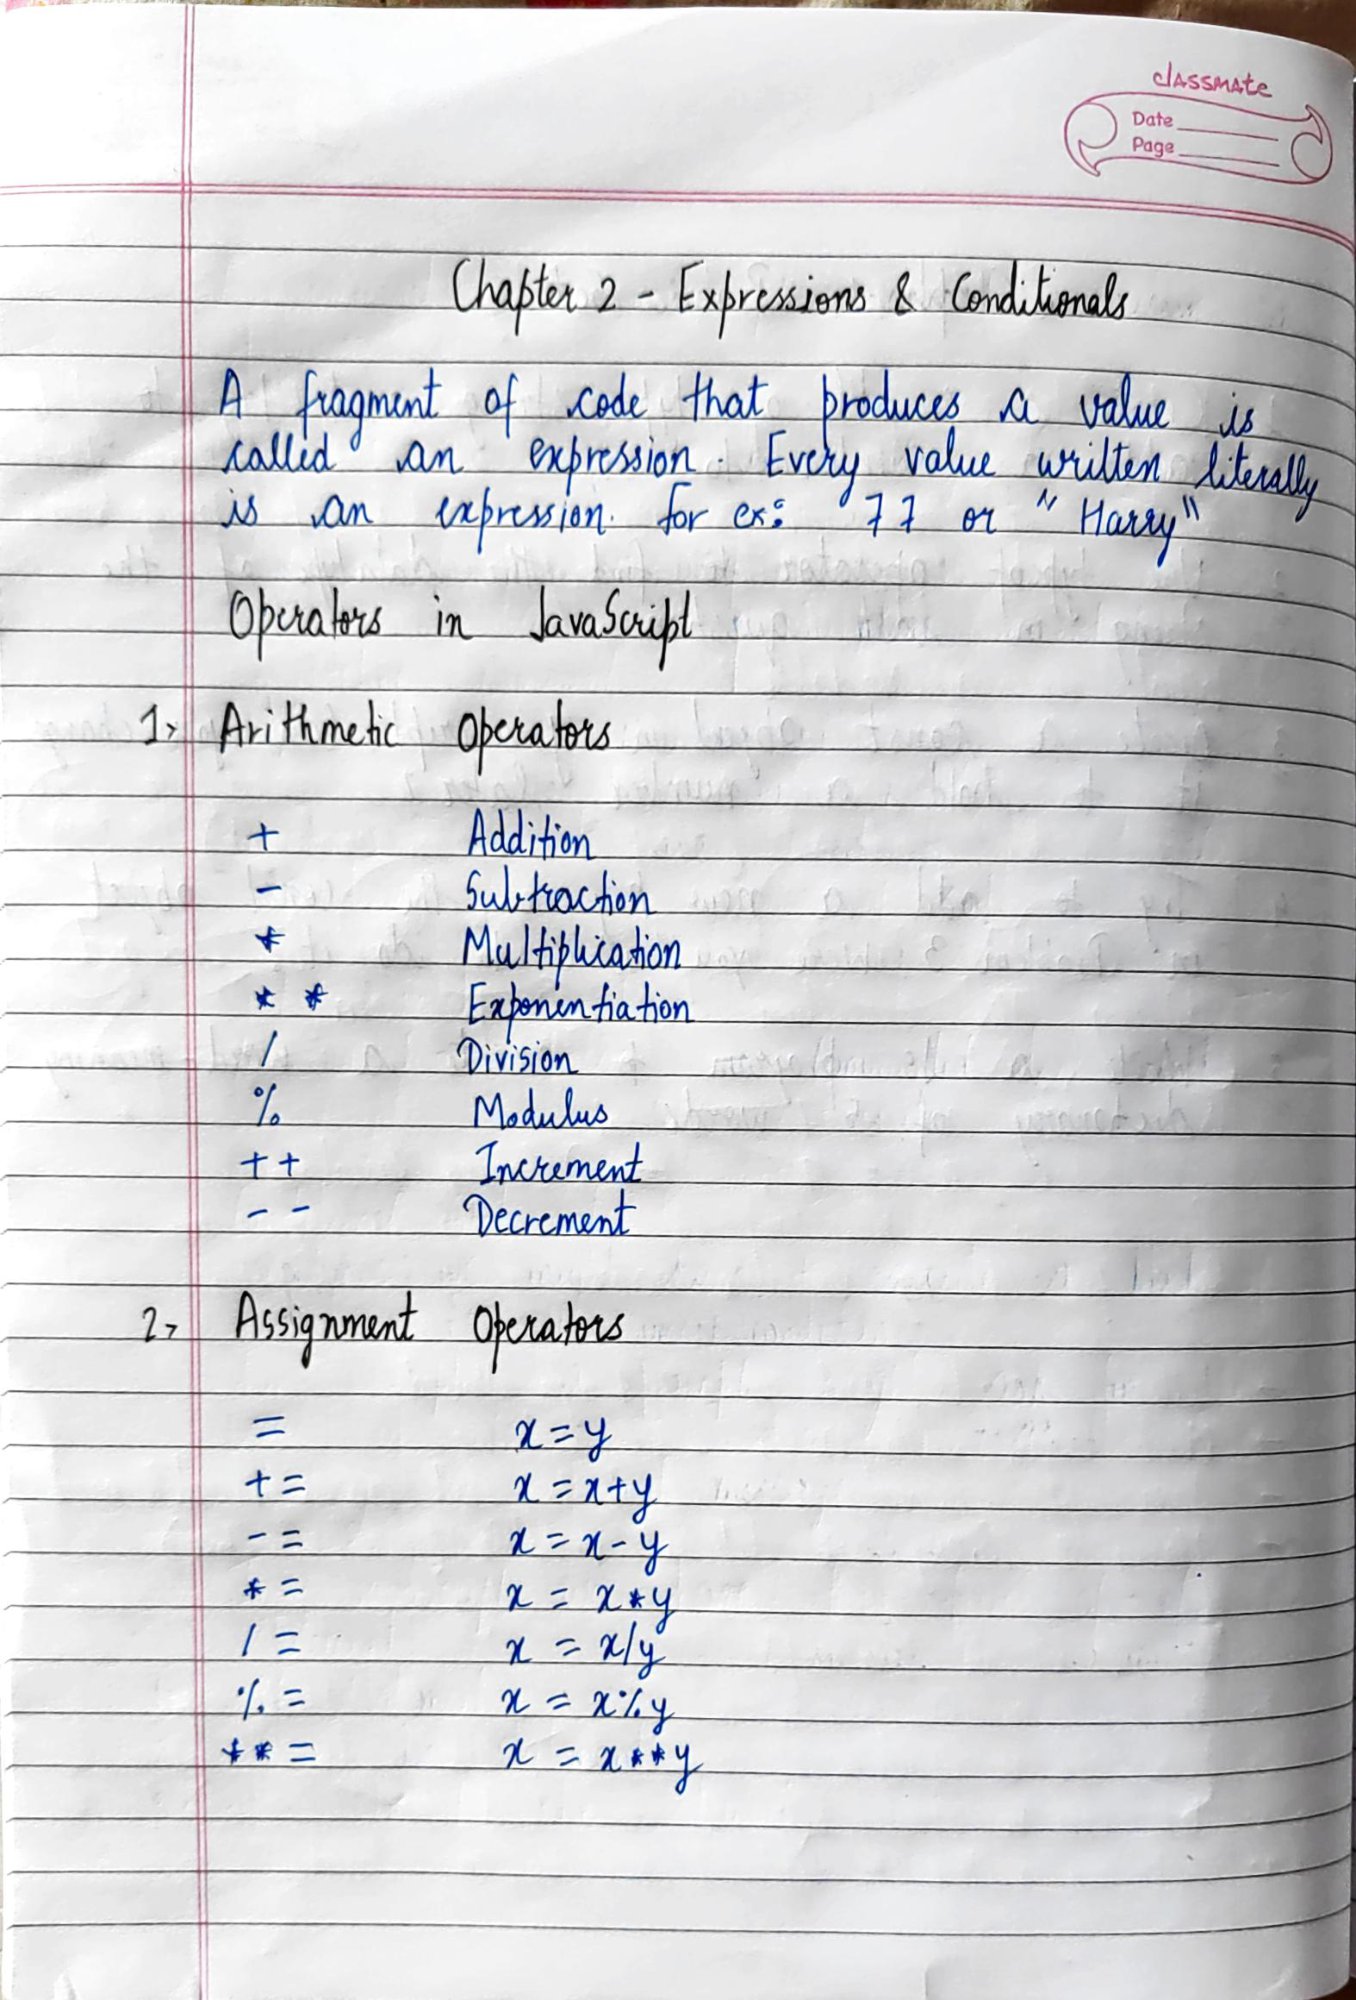 classmate
Date
Page
Chapter 2 - Expressions & Conditionals
A fragment of code that produces a value is
called an expression. Every value written literally
is an expression. for ex: 77 or "Harry"
Operators in JavaScript
1> Arithmetic Operators
+ Addition
- Subtraction
* Multiplication
** Exponentiation
/ Division
% Modulus
++ Increment
-- Decrement
2> Assignment Operators
= x=y
+= x=x+y
-= x=x-y
*= x=x*y
/= x=x/y
%= x=x%y
**= x=x**y